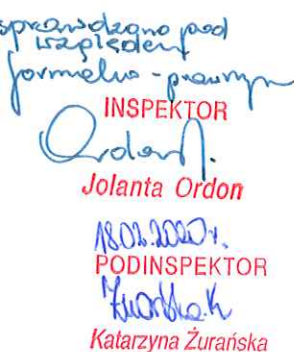 sprawdzono pod
względem
formalno-prawnym
INSPEKTOR
Jolanta Ordon
18.02.2020r.
PODINSPEKTOR
Katarzyna Żurańska